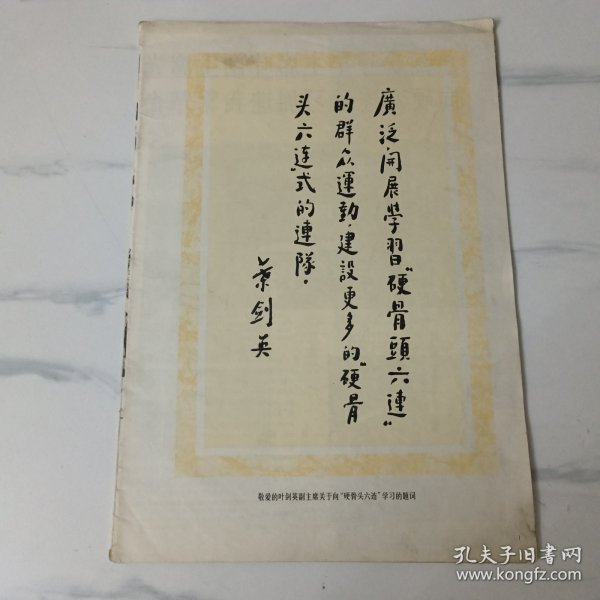 廣泛開展學習“硬骨頭六連”
的群众運動，建設更多的“硬骨
头六连”式的連隊。
叶剑英
敬爱的叶剑英副主席关于向“硬骨头六连”学习的题词
孔夫子旧书网
www.kongfz.com